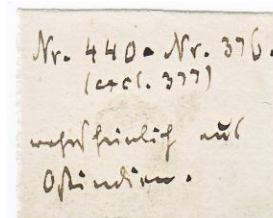 Nr. 440. Nr. 376.
(excl. 377)
wahrscheinlich aus
Ostindien.